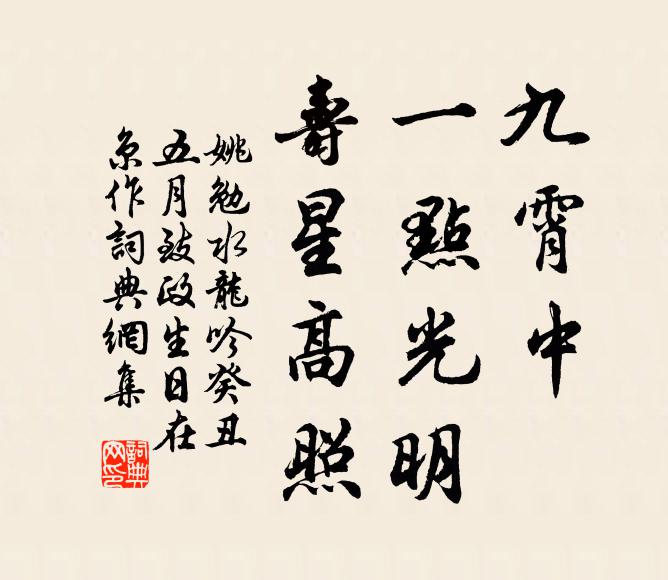 九霄中
一點光明
壽星高照
姚勉水龍吟癸丑
五月致政生日在
京作詞典網集
詞典
网印